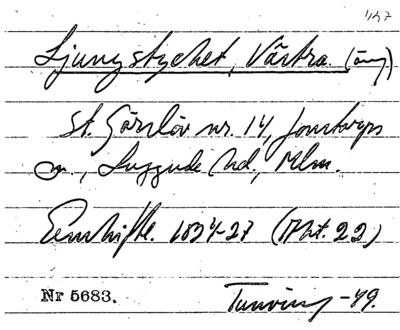 Ljungstycket, Västra. (äng)
St. Görslöv nr. 14, Jonstorps
sn., Luggude hd., Mlm.
Enskifte. 1824-27 (Akt. 22)
Nr 5683.
Tunving -49.